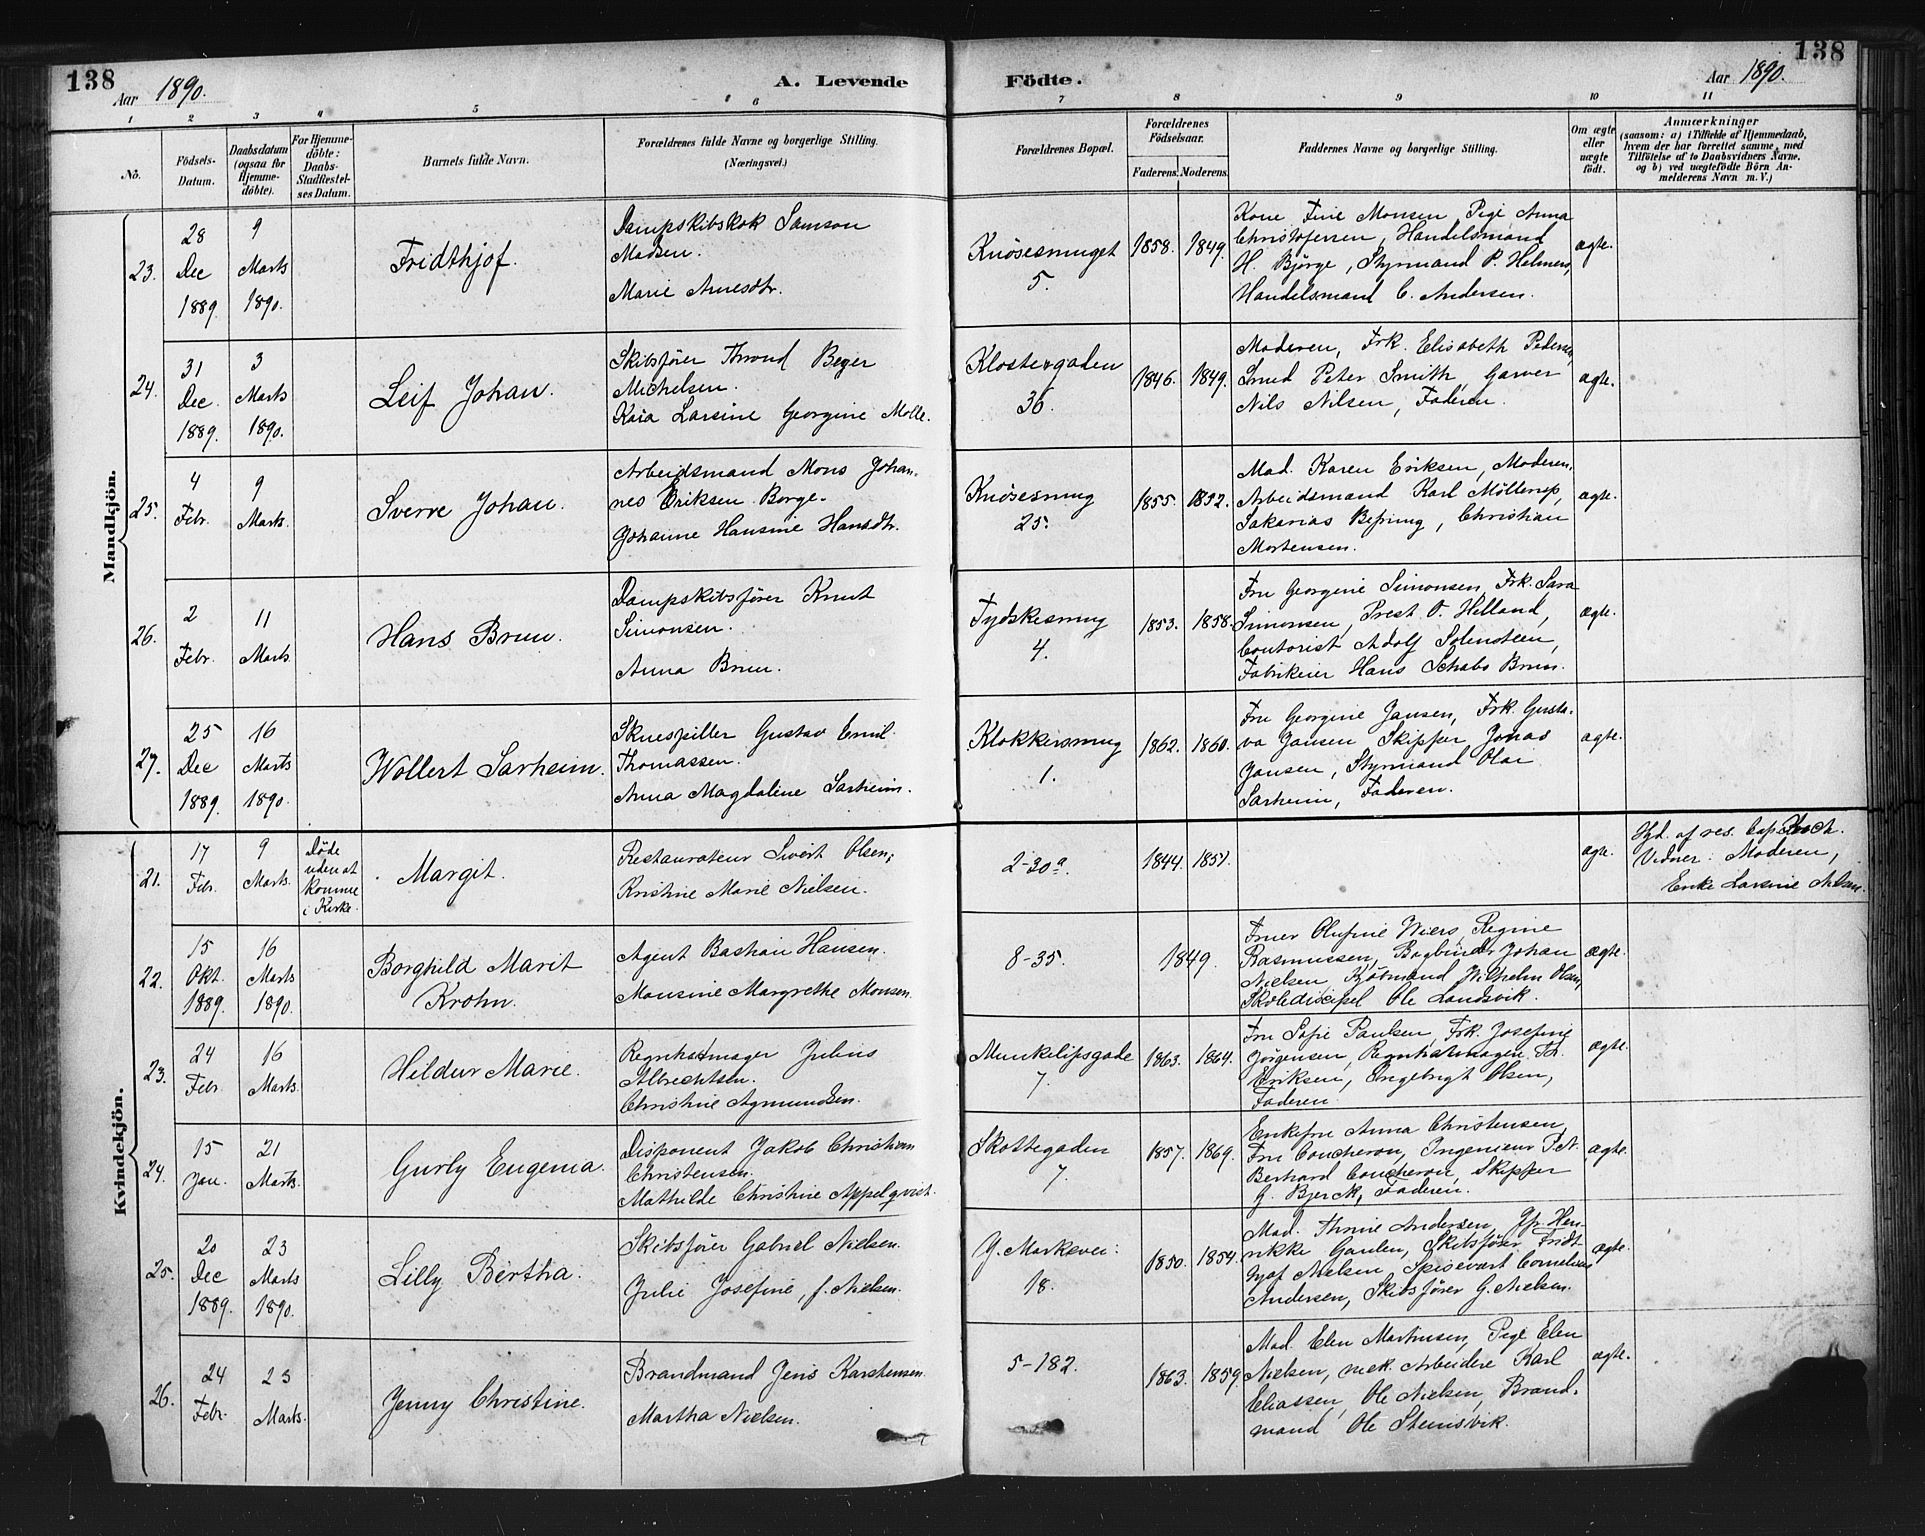 138
Aar 1890.
A. Levende
Födte.
Aar 1890.
138
1
2
3
4
5
6
7
8
9
10
11
No.
Födsels-
Datum.
Daabsdatum
(ogsaa for
Hjemme-
döbte).
For Hjemme-
döbte:
Daabs-
Stadfæstel-
ses Datum.
Barnets fulde Navn.
Forældrenes fulde Navne og borgerlige Stilling.
(Næringsvei.)
Forældrenes Bopæl.
Forældrenes
Födselsaar.
Faderens.
Moderens.
Faddernes Navne og borgerlige Stilling.
Om ægte
eller
uægte
født.
Anmærkninger
(saasom: a) i Tilfælde af Hjemmedaab,
hvem der har forrettet samme, med
Tilföielse af to Daabsvidners Navne,
og b) ved uægtefödte Börn An-
melderens Navn m.V.)
Mandkjön.
23.
28
Dec
1889.
9
Marts
1890.
Fridthjof.
Dampskibskok Samson
Madsen.
Marie Arnesdtr.
Knösesmuget
5.
1858.
1849.
Kone Fine Monsen, Pige Anna
Christofersen, Handelsmand
H. Björge, Styrmand P. Helmers,
Handelsmand C. Andersen.
ægte.
24.
31
Dec.
1889.
3
Marts
1890.
Leif Johan.
Skibsfører Thrond Beyer
Michelsen.
Kaia Larsine Georgine Molle.
Klostergaden
36.
1846.
1849.
Moderen, Frk. Elisabeth Pedersen,
Smed Peter Smith, Garver
Nils Nilsen, Faderen.
ægte.
25.
4
Febr.
9
Marts.
Sverre Johan.
Arbeidsmand Mons Johan-
nes Eriksen Borge.
Johanne Hansine Hansdtr.
Knösesmug
25.
1855.
1852.
Mad. Karen Eriksen, Moderen,
Arbeidsmand Karl Möllerup,
Sakarias Befring, Christian
Mortensen.
ægte.
26.
2
Febr.
11
Marts.
Hans Brun.
Dampskibsfører Knut
Simonsen.
Anna Brun.
Tydskesmug
4.
1853.
1858.
Fru Georgine Simonsen, Frk. Sara
Simonsen, Prest O. Helland,
Contorist Adolf Solensteen,
Fabrikeier Hans Schabo Brun.
ægte.
27.
25
Dec
1889.
16
Marts
1890.
Wollert Sarheim.
Skuespiller Gustav Emil
Thomassen.
Anna Magdaline Sarheim.
Klokkersmug
1.
1862.
1860.
Fru Georgine Jansen, Frk. Gusta-
va Jansen Skipper Jonas
Jansen, Styrmand Olai
Sarheim, Faderen.
ægte.
Kvindekjön.
21.
17
Febr.
9
Marts.
Døde
uden at
komme
i Kirke.
Margit.
Restauratør Sivert Olsen,
Kristine Marie Nielsen.
2-30a.
1844.
1851.
ægte.
Hjd. af res. Cap.
Vidner: Moderen,
Enke Larsine
22.
15
Okt.
1889.
16
Marts
1890.
Borghild Marit
Krohn.
Agent Bastian Hansen.
Monsine Margrethe Monsen.
8-35.
1849.
Fruer Olufine Wiers, Regine
Rasmussen, Bogbinder Johan
Nielsen, Kjøbmand Wilhelm Olsen,
Skoledisipel Ole Landsvik.
ægte.
23.
24
Febr.
16
Marts.
Hildur Marie.
Regnhatmager Julius
Albrechtsen.
Christine Agmundsen.
Munkelipsgade
7.
1863.
1864.
Fru Sofie Paulsen, Frk. Josefine
Jørgensen, Regnhatmager Th.
Eriksen, Engebrigt Olsen,
Faderen.
ægte.
24.
15
Jan.
21
Marts.
Gurly Eugenia.
Disponent Jakob Christian
Christensen.
Mathilde Christine Appelqvist.
Skottegaden
7.
1857.
1869.
Enkefru Anna Christensen,
Fru Coucheron, Ingenieur P. N.
Berhard Coucheron, Skipper
G. Bjerck, Faderen.
ægte.
25.
20
Dec
1889.
23
Marts
1890.
Lilly Bertha.
Skibsfører Gabriel Nielsen.
Julie Josefine, f. Nielsen.
G. Markevei.
18.
1850.
1854.
Mad. Thrine Andersen, Jfr. Hen-
rikke Gaulen, Skibsfører Fridt
hjof Nielsen, Spisevært Cornelius
Andersen, Skibsfører G. Nielsen.
ægte.
26.
24
Febr.
23
Marts.
Jenny Christine.
Brandmand Jens Karstensen.
Martha Nielsen.
5-182.
1863.
1859.
Mad. Elen Martinsen, Pige Elen
Nielsen, mek. Arbeidere Karl
Eliassen, Ole Nielsen, Brand-
mand Ole Stensvik.
ægte.